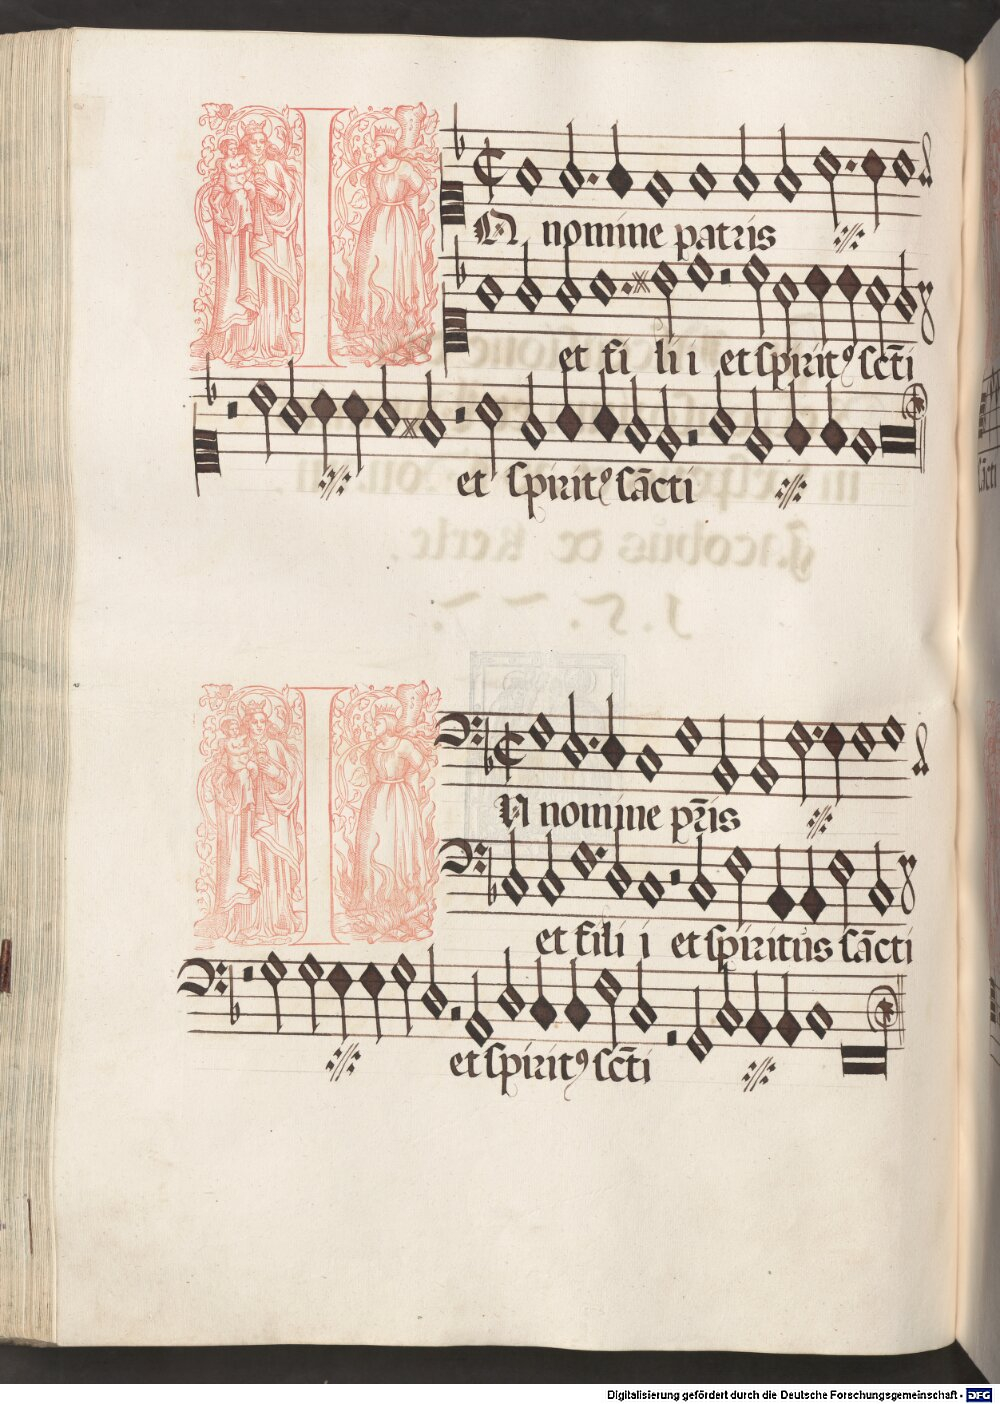 IN nomine patris
et fi li i et spiritꝰ sc̄ti
et spiritꝰ sāncti
IN nomine pr̄is
et fili i et spiritus sāncti
et spiritꝰ sc̄ti
sācti
Digitalisierung gefördert durch die Deutsche Forschungsgemeinschaft - DFG